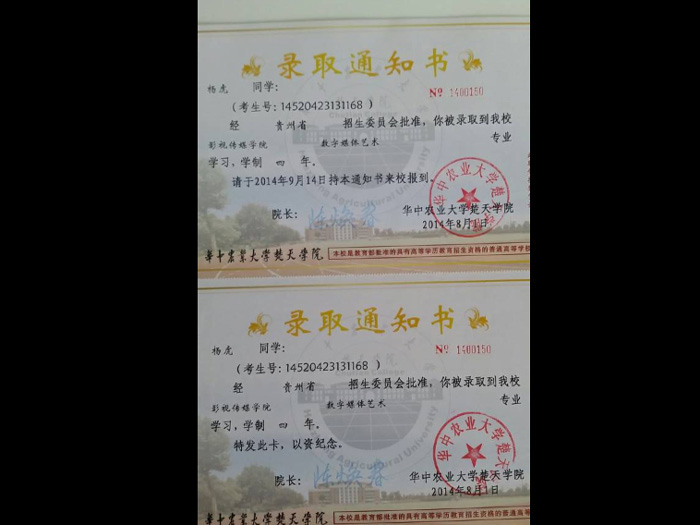 录取通知书
杨虎 同学：
Nº 1400150
（考生号：14520423131168 ）
经 贵州省 招生委员会批准，你被录取到我校
影视传媒学院 数字媒体艺术 专业
学习，学制 四 年。
请于2014年9月14日持本通知书来校报到。
华中农业大学楚天学院
院长： 华中农业大学楚天学院
2014年8月1日
华中农业大学楚天学院 本校是教育部批准的具有高等学历教育招生资格的普通高等学校
录取通知书
杨虎 同学：
Nº 1400150
（考生号：14520423131168 ）
经 贵州省 招生委员会批准，你被录取到我校
影视传媒学院 数字媒体艺术 专业
学习，学制 四 年。
特发此卡，以资纪念。
华中农业大学楚天学院
院长： 华中农业大学楚天学院
2014年8月1日
华中农业大学楚天学院 本校是教育部批准的具有高等学历教育招生资格的普通高等学校